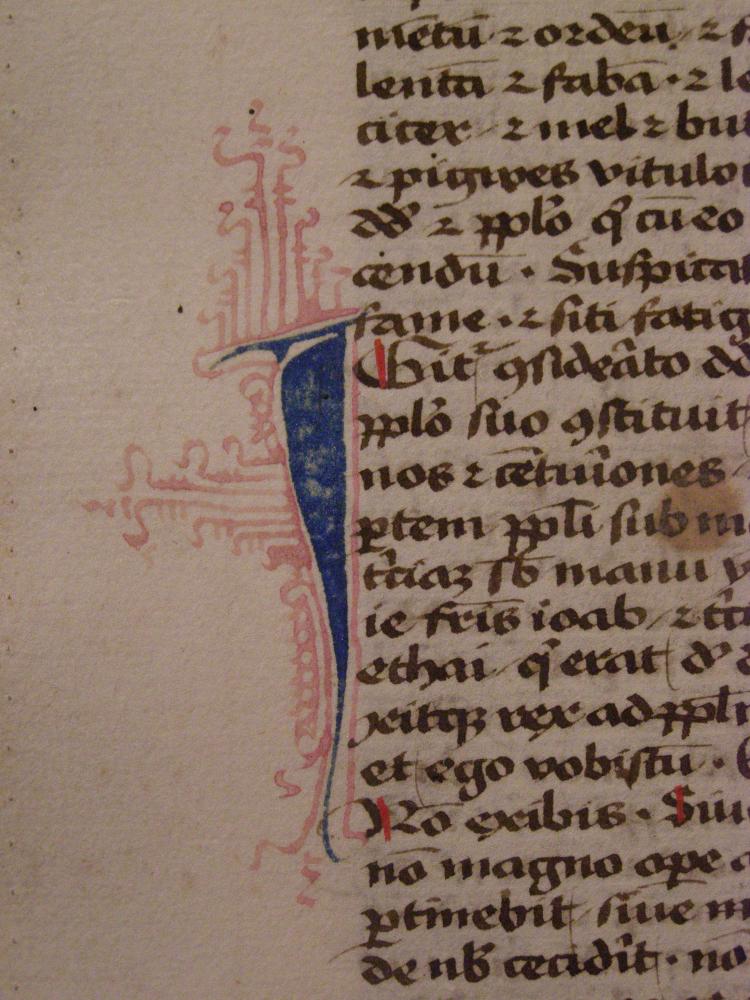 mētū ⁊ ordeū ⁊
lentā ⁊ fabā · ⁊ le
cicer ⁊ mel ⁊ bu
⁊ pigwes vitulo
dd̄ ⁊ pplo q̄ cū eo
cendū · Suspica
fame · ⁊ siti fatig
Igit᷑ ꝯsideāto dd
pplo suo ꝯstituit
nos ⁊ cētuīones
ꝑtem ppli sub m
t̄ciaꝫ sb̄ manu
ie fr̄is ioab ⁊
ethai q̄ erat d̄
xitqꝫ rex ad ppl
et ego vobiscū ·
No exibis · Siu
nō magno ope
ꝑtinebit siue m
de nb̄ cecidīt · no